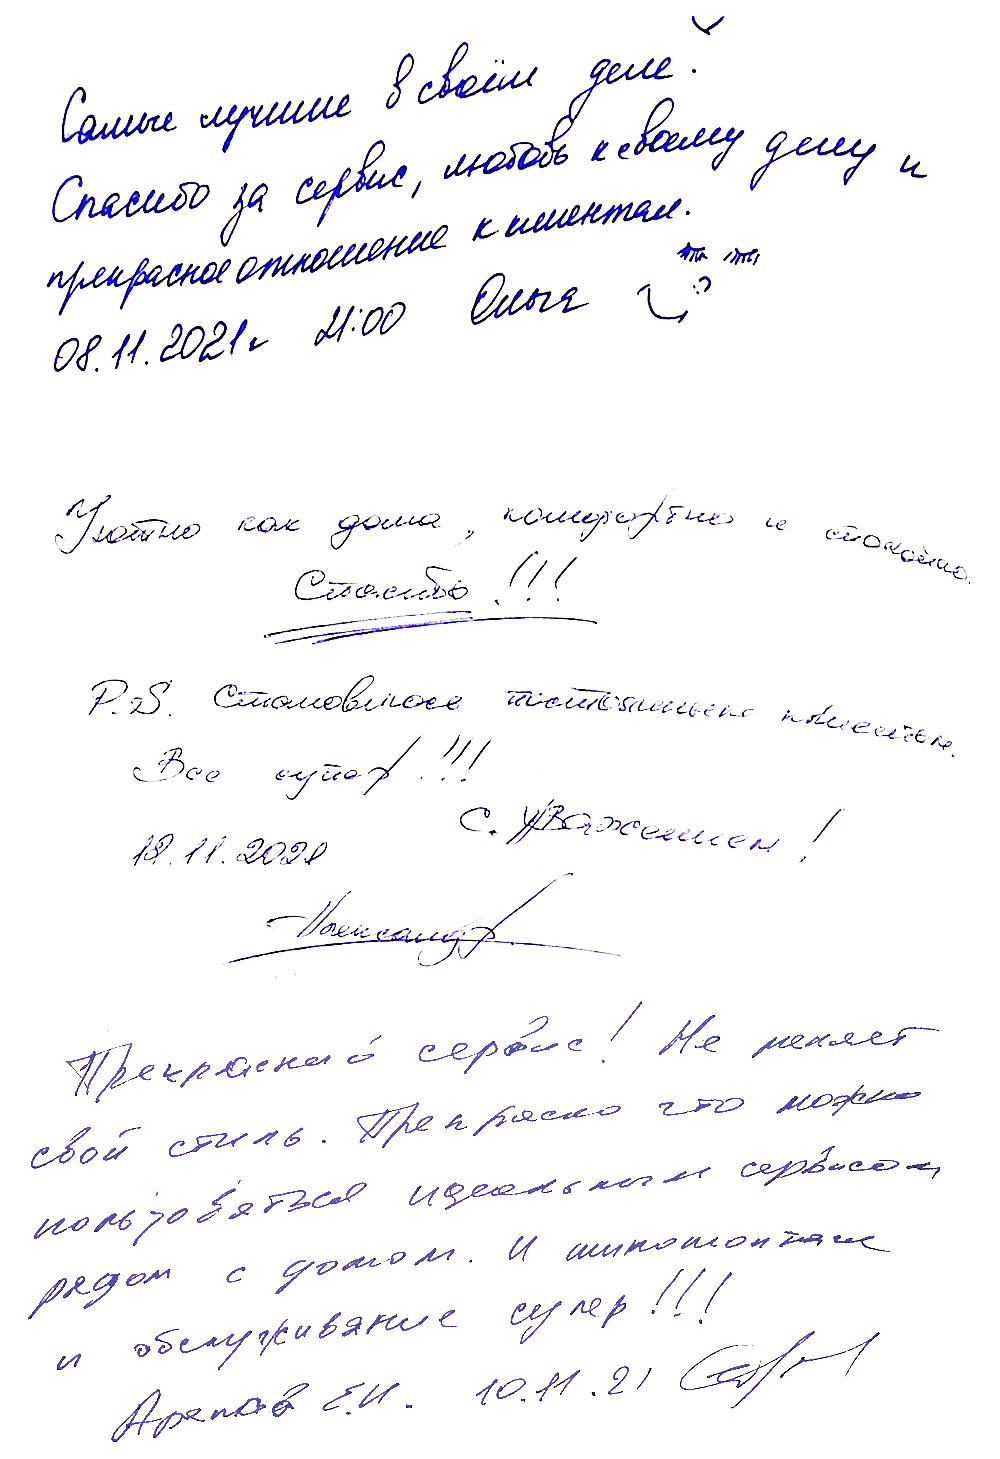 Самые лучшие в своём деле.
Спасибо за сервис, любовь к своему делу и
прекрасное отношение к клиентам.
08.11.2021г 21:00 Ольга
Уютно как дома, комфортно и спокойно.
Спасибо!!!
P.S. Становлюсь постоянным клиентом.
Все супер!!!
С. Уважением!
12.11.2021
Александр
Прекрасный сервис! Не меняет
свой стиль. Прекрасно что можно
пользоваться идеальным сервисом
рядом с домом. И шиномонтаж
и обслуживание супер!!!
Е.И. 10.11.21